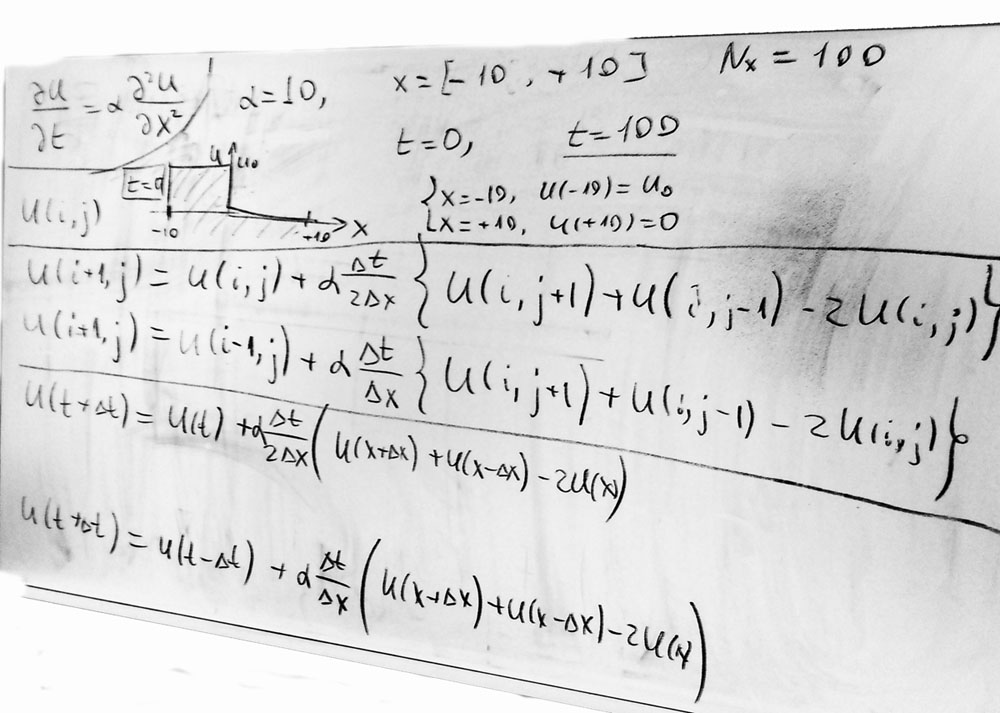 ∂u/∂t = α ∂²u/∂x² α=10, x=[-10, +10] Nx = 100
t=0, t=100
u u₀
t=0
{x=-10, u(-10)=u₀
{x=+10, u(+10)=0
u(i,j) -10 +10 x
u(i+1,j) = u(i,j) + α Δt/2Δx {u(i,j+1)+u(i,j-1)-2u(i,j)}
u(i+1,j) = u(i-1,j) + α Δt/Δx {u(i,j+1)+u(i,j-1)-2u(i,j)}
u(t+Δt) = u(t) + α Δt/2Δx (u(x+Δx)+u(x-Δx)-2u(x))
u(t+Δt) = u(t-Δt) + α Δt/Δx (u(x+Δx)+u(x-Δx)-2u(x))